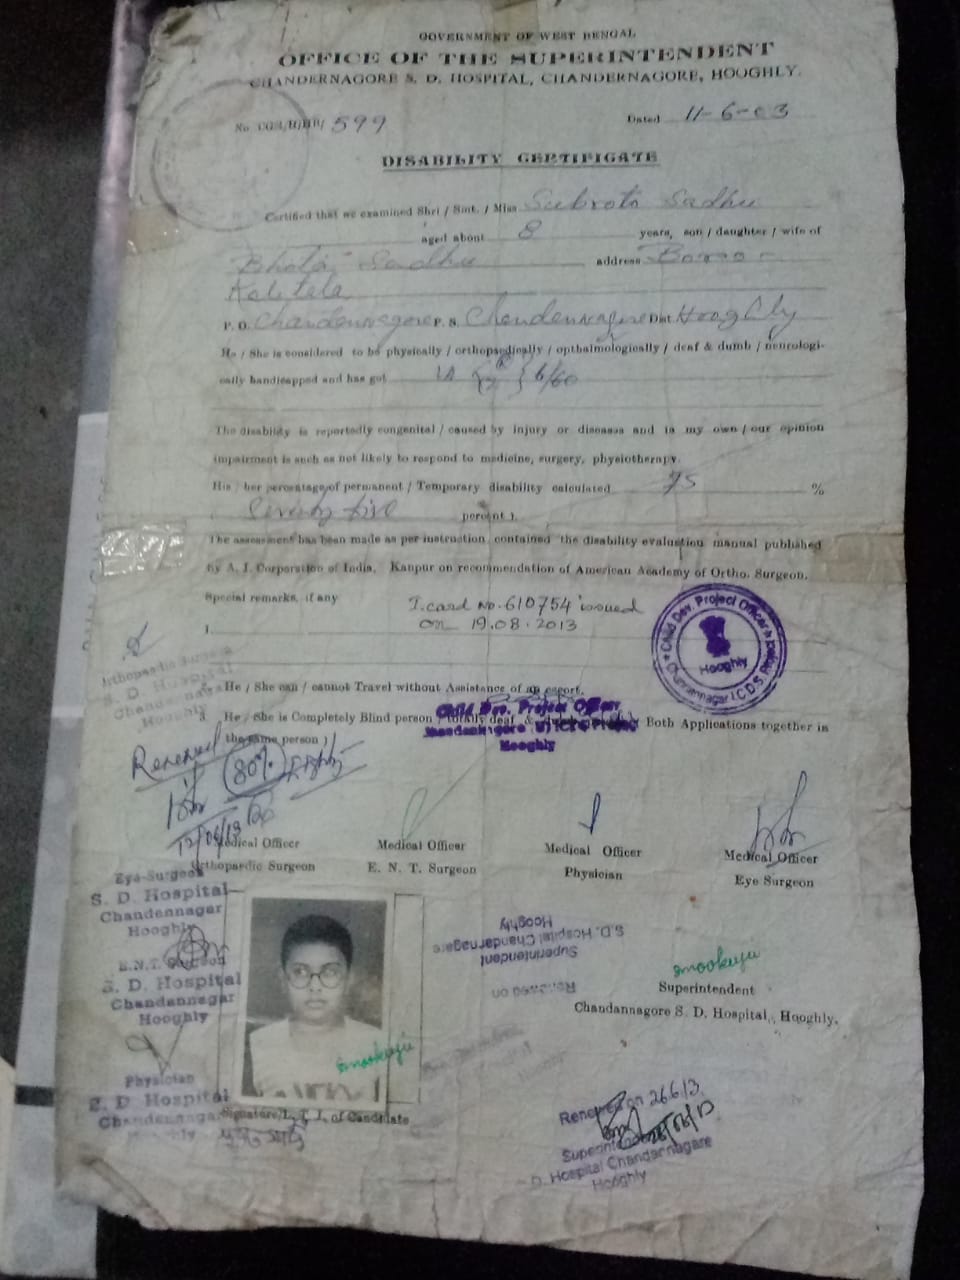 GOVERNMENT OF WEST BENGAL
OFFICE OF THE SUPERINTENDENT
CHANDERNAGORE S. D. HOSPITAL, CHANDERNAGORE, HOOGHLY.
No. 599
Dated 11-6-03
DISABILITY CERTIFICATE
Certified that we examined Shri / Smt. / Miss Subrota Sadhu
aged about 8 years, son / daughter / wife of
Bhola Sadhu address
Kalitala
P. O. Chandernagore P. S. Chandernagore Dist Hooghly
He / She is considered to be physically / orthopaedically / opthalmologically / deaf & dumb / neurologi-
cally handicapped and has got 6/60
The disability is reportedly congenital / caused by injury or diseases and in my own / our opinion
impairment is such as not likely to respond to medicine, surgery, physiotherapy.
His / her percentage of permanent / Temporary disability calculated 75 %
Seventy five percent ).
The assessment has been made as per instruction contained the disability evaluation manual published
by A. I. Corporation of India, Kanpur on recommendation of American Academy of Ortho. Surgeon.
Special remarks, if any I. card No. 610754 issued
1. on 19.08.2013
Child Dev. Project Officer
Chandannagar I.C.D.S. Project
Hooghly
Orthopaedic Surgeon
S. D. Hospital
Chandannagar
Hooghly
He / She can / cannot Travel without Assistance of an escort.
3. He / She is Completely Blind person / totally deaf & Both Applications together in
the same person )
Child Dev. Project Officer
Hooghly
Renewed
80%
Medical Officer
Orthopaedic Surgeon
Medical Officer
E. N. T. Surgeon
Medical Officer
Physician
Medical Officer
Eye Surgeon
Eye-Surgeon
S. D. Hospital
Chandannagar
Hooghly
E.N.T. Surgeon
S. D. Hospital
Chandannagar
Hooghly
Physician
S. D. Hospital
Chandannagar
Hooghly
Renewed on
Superintendent
S.D. Hospital Chandernagore
Hooghly
Superintendent
Chandannagore S. D. Hospital, Hooghly.
Signature/L. T. I. of Candidate
Renewed on 26.6.13
Superintendent
D. Hospital Chandannagare
Hooghly